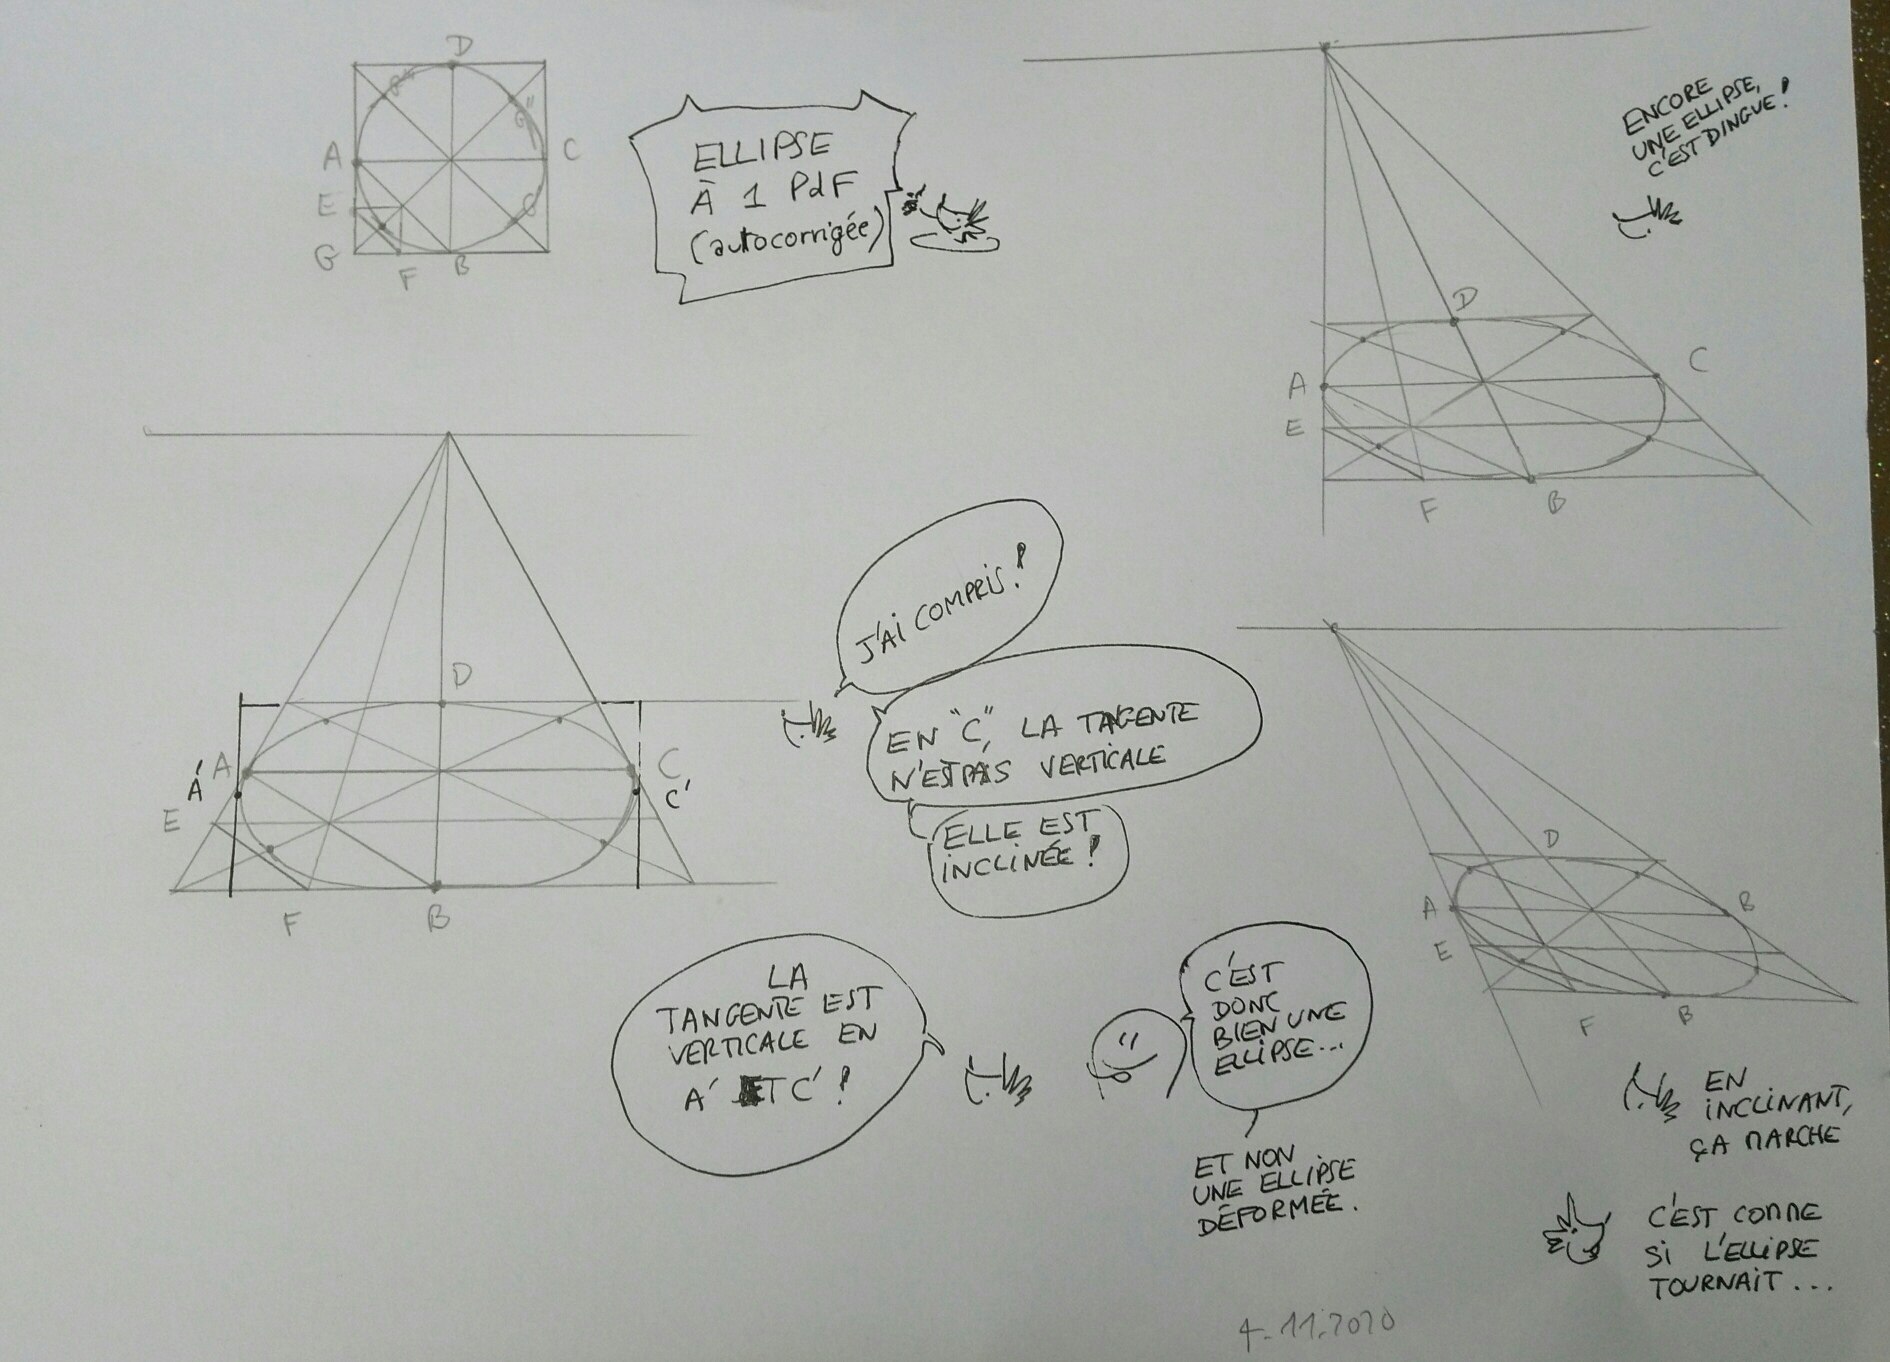 D
A
C
E
G
F
B
ELLIPSE
À 1 PdF
(autocorrigée)
ENCORE
UNE ELLIPSE,
C'EST DINGUE!
D
A
C
E
F
B
D
A
C
A'
C'
E
F
B
J'AI COMPRIS!
EN "C", LA TANGENTE
N'EST PAS VERTICALE
ELLE EST
INCLINÉE!
D
A
B
E
F
B
LA
TANGENTE EST
VERTICALE EN
A' ET C'!
C'EST
DONC
BIEN UNE
ELLIPSE...
ET NON
UNE ELLIPSE
DÉFORMÉE.
EN
INCLINANT,
ÇA MARCHE
C'EST COMME
SI L'ELLIPSE
TOURNAIT...
4.11.2020